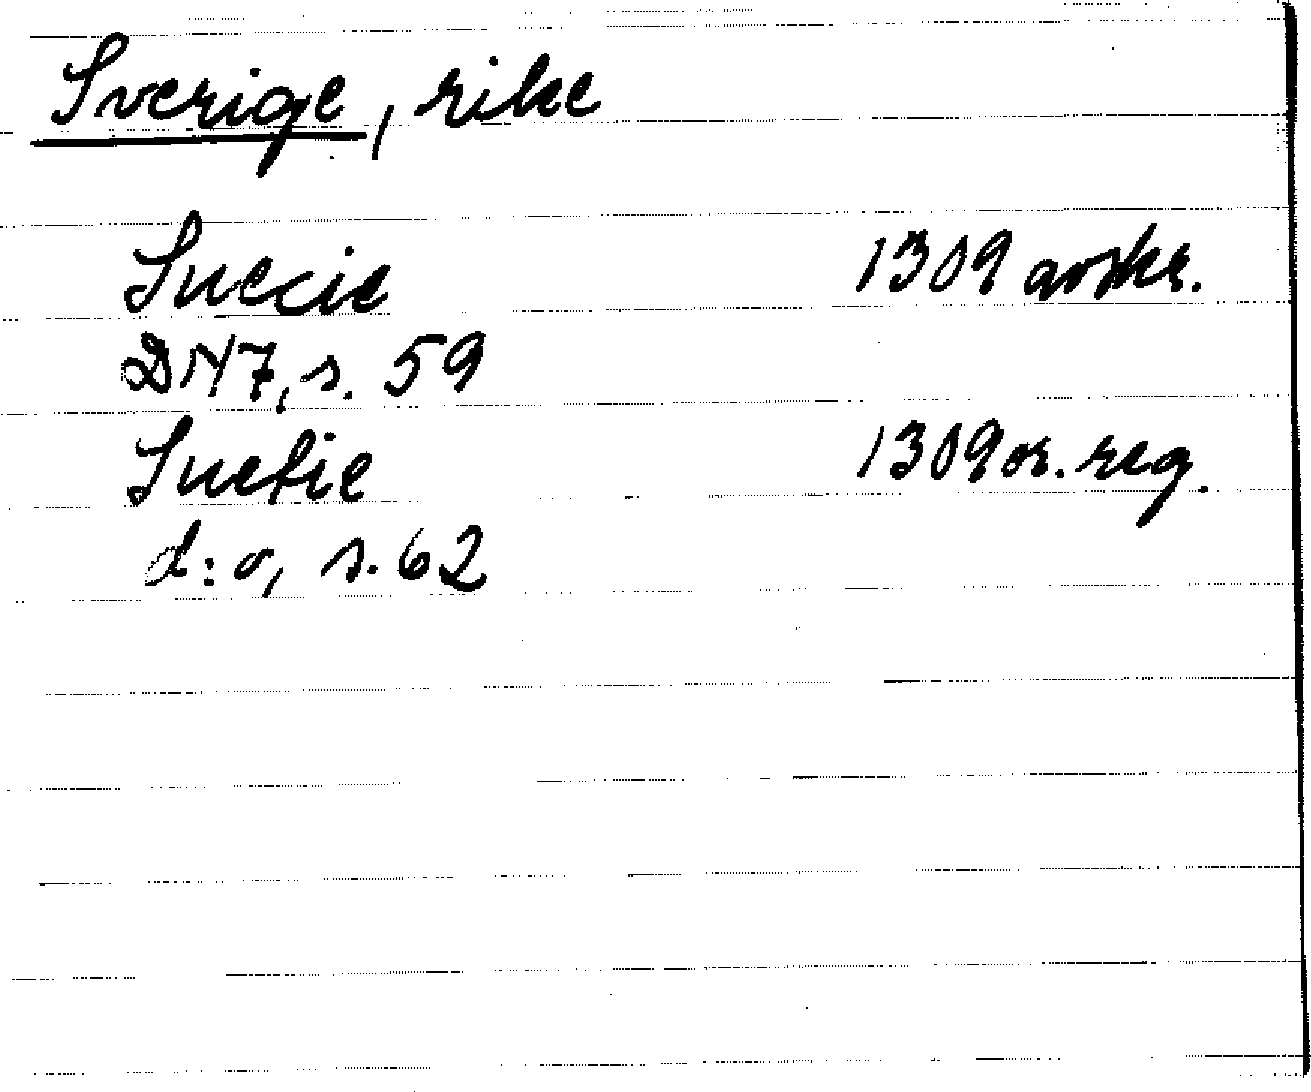 Sverige, rike
Suecie 1309 avskr.
DN7, s. 59
Suetie 1309 or. reg.
d:o, s. 62